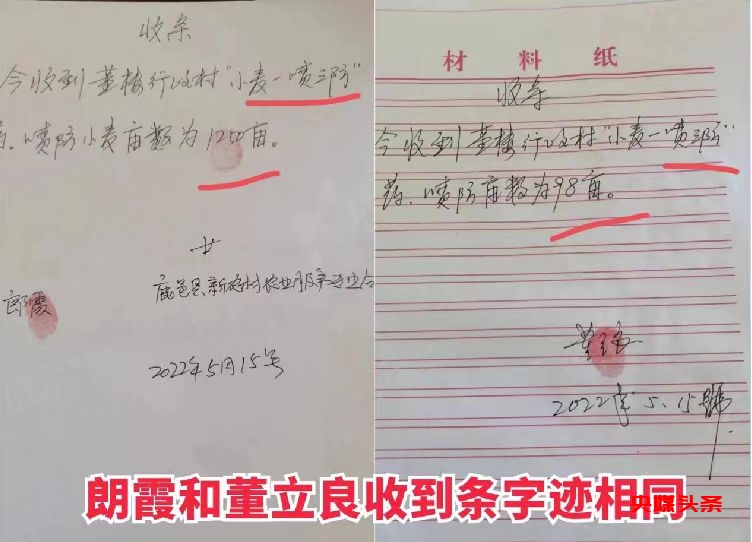 收条
今收到董楼行政村"小麦一喷三防"
药. 喷防小麦亩数为1250亩。
鹿邑县新村农业服务专业合
郎霞
2022年5月15号
材料纸
收条
今收到董楼行政村"小麦一喷三防"
药. 喷防亩数为98亩。
董立良
2022年5.15號
朗霞和董立良收到条字迹相同
央媒头条